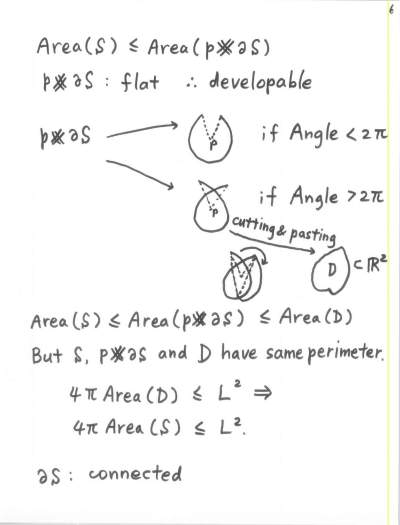 6
Area(S) ≤ Area(p※∂S)
p※∂S : flat ∴ developable
p※∂S
P
if Angle < 2π
P
if Angle > 2π
cutting & pasting
D
⊂ ℝ²
Area(S) ≤ Area(p※∂S) ≤ Area(D)
But S, p※∂S and D have same perimeter.
4π Area(D) ≤ L² ⇒
4π Area(S) ≤ L².
∂S : connected